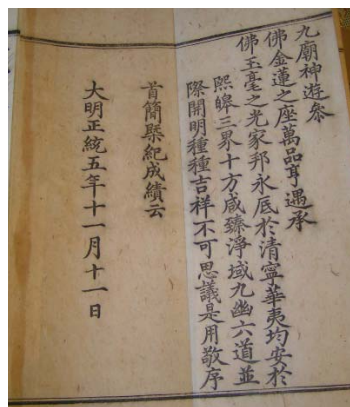 九廟神遊參
佛金蓮之座萬品亨遇承
佛玉毫之光家邦永底於清寧華夷均安於
熙皞三界十方咸臻淨域九幽六道並
際開明種種吉祥不可思議是用敬序
首簡槩紀成績云
大明正統五年十一月十一日